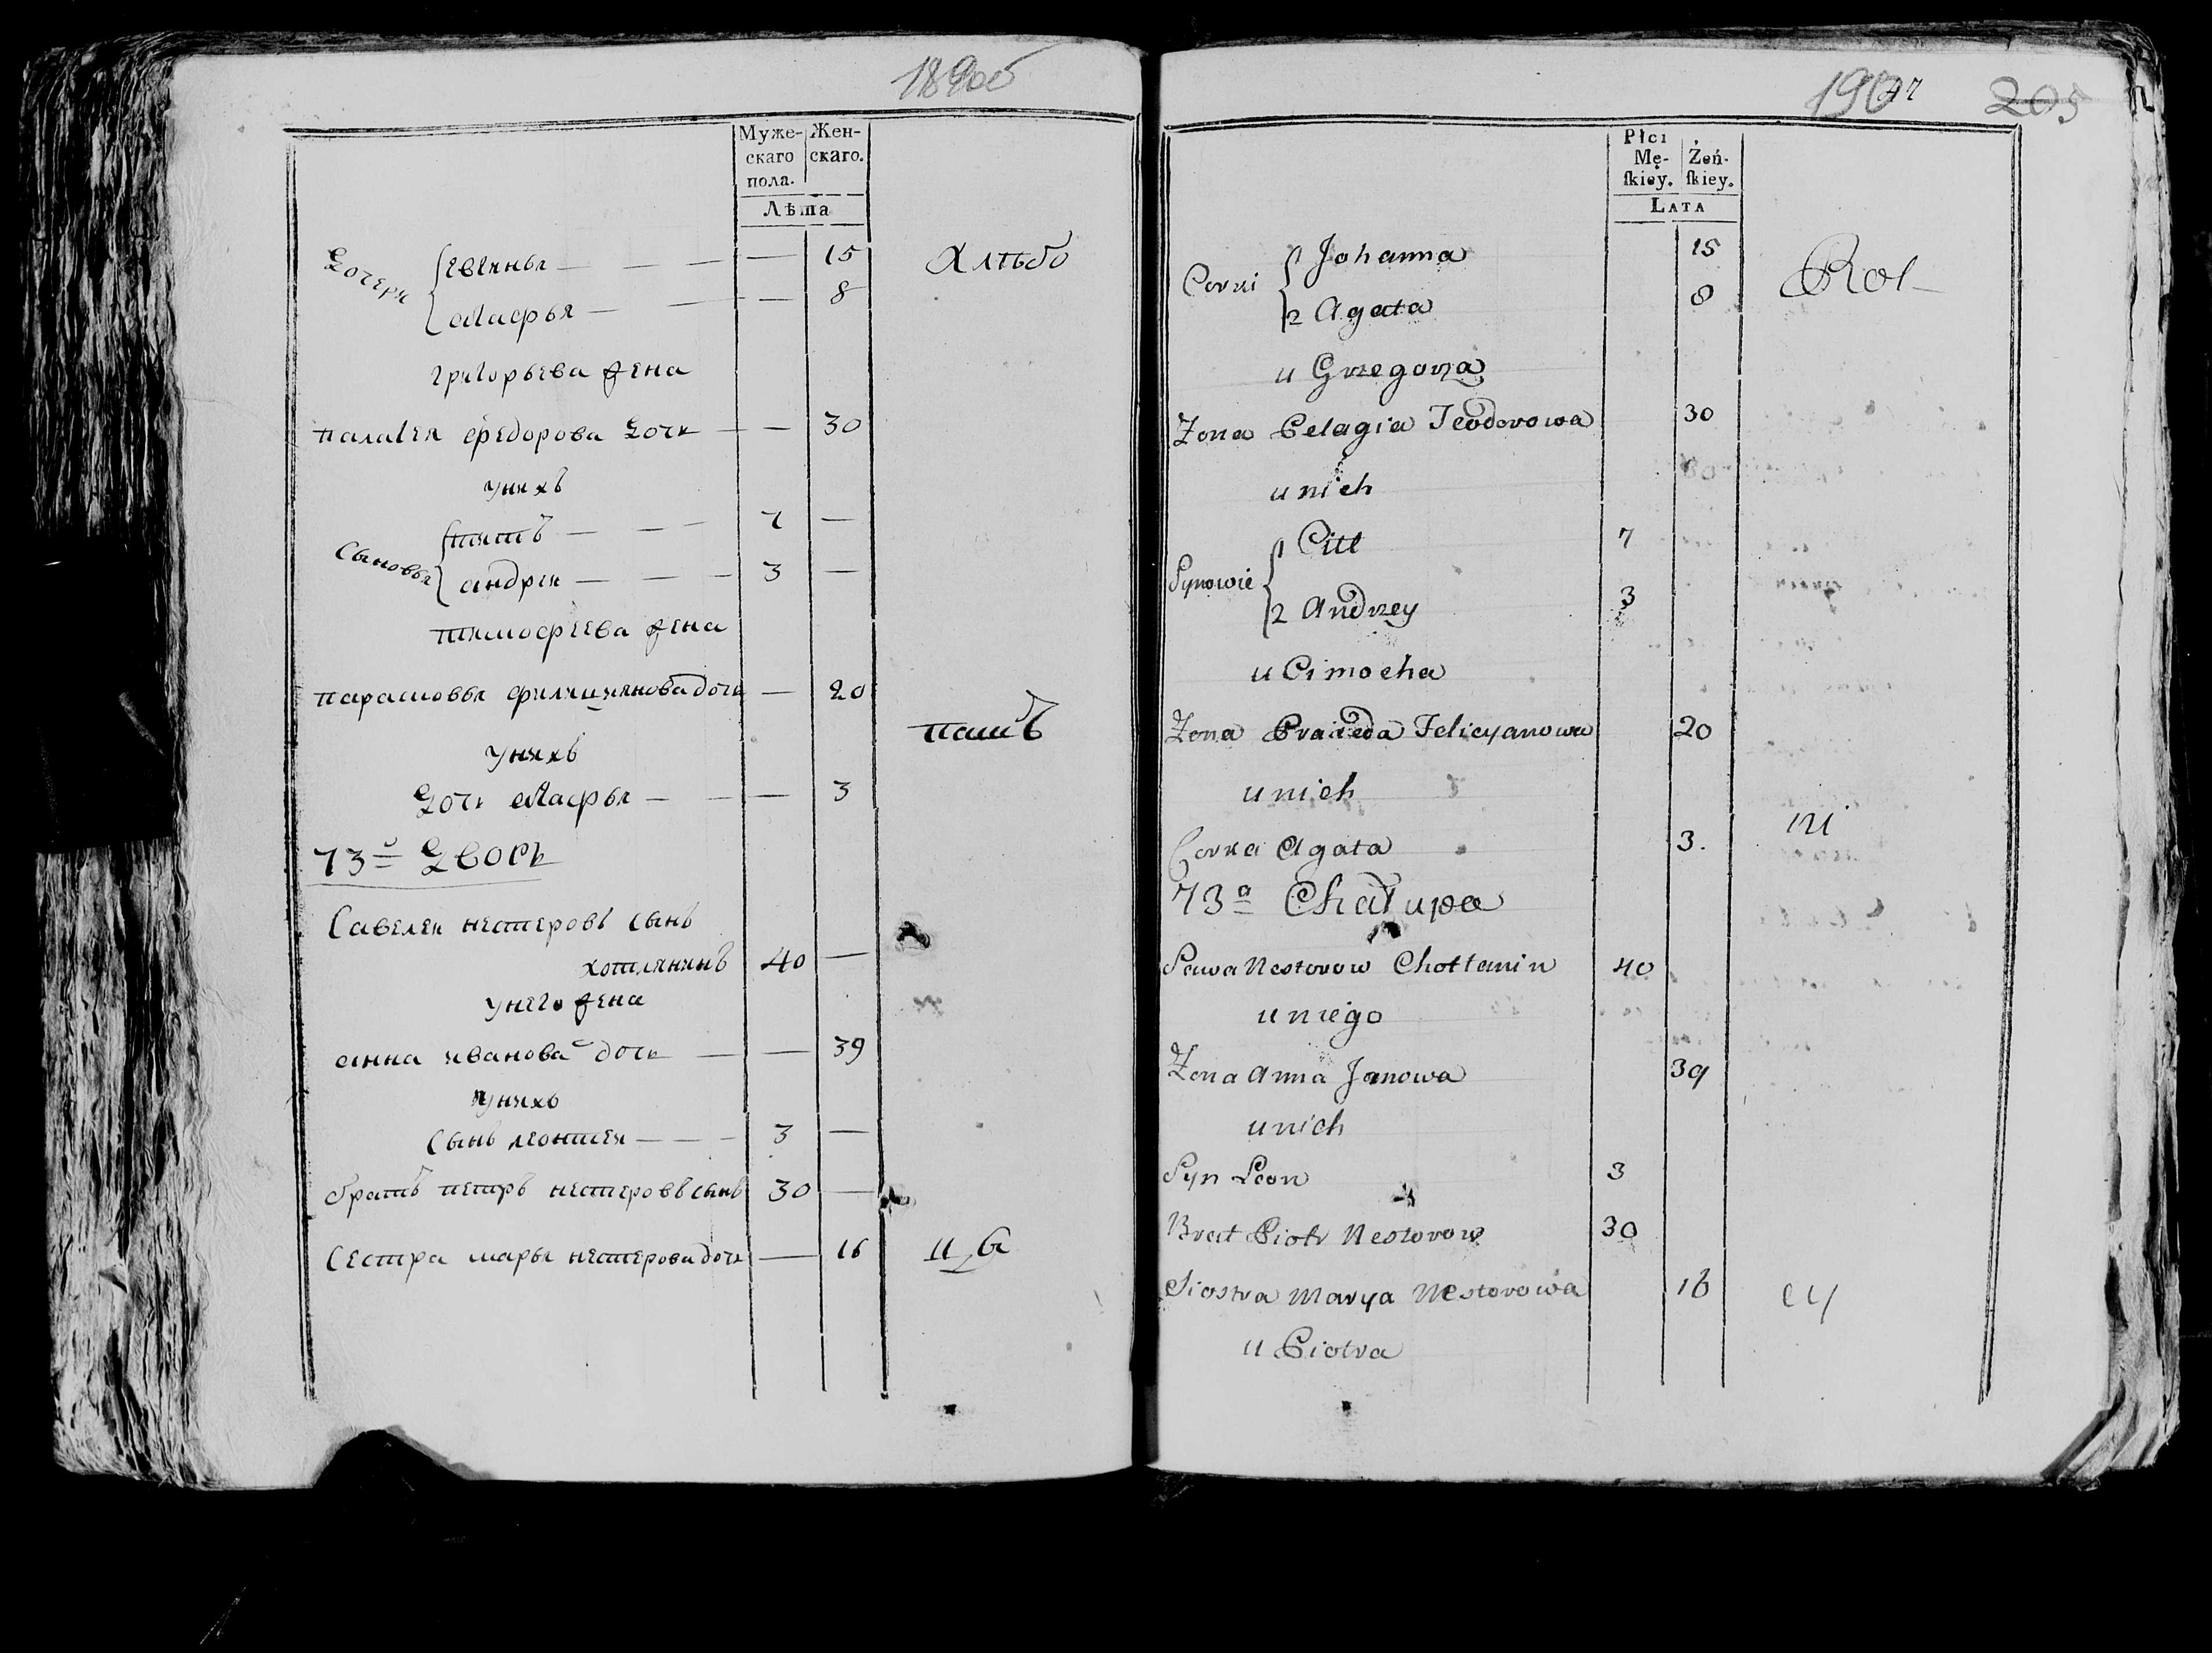 Муже- Жен-
скаго скаго.
пола.
Лѣта
Дочери Евгинья — — — — 15 Хлѣбо
Агафья — — — 8
григорьева жена
палагея федорова дочь — — 30
у нихъ
Сыновья титъ — — — 7 —
андрей — — — 3 —
тимофеева жена
парасковья филицианова дочь — 20
пашъ
у нихъ
дочь Агафья — — — 3
73й Дворъ
Савелей нестеровъ сынъ
хотлянинъ 40 —
у него жена
анна иванова дочь — — 39
у нихъ
Сынъ леонтей — — — 3 —
братъ петръ нестеровъ сынъ 30 —
Сестра марья нестерова дочь — 16
205
Płci
Mę- Żeń-
ſkiey. ſkiey.
LATA
Corki Johanna 15 Rol-
2 Agata 8
u Grzegorza
Zona Pelagia Teodorowa 30
u nich
Synowie 1 Citt 7
2 Andrzey 3
u Cimocha
Zona Praxeda Felicyanowa 20
u nich
ni
Corka Agata 3.
73a Chałupa
Sawa Nestorow Chotlanin 40
u niego
Zona Anna Janowa 39
u nich
Syn Leon 3
Brat Piotr Nestorow 30
Siostra Marya Nestorowa 16 cy
u Piotra